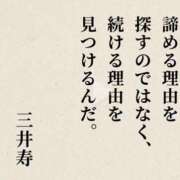 諦める理由を
探すのではなく、
続ける理由を
見つけるんだ。
三井寿